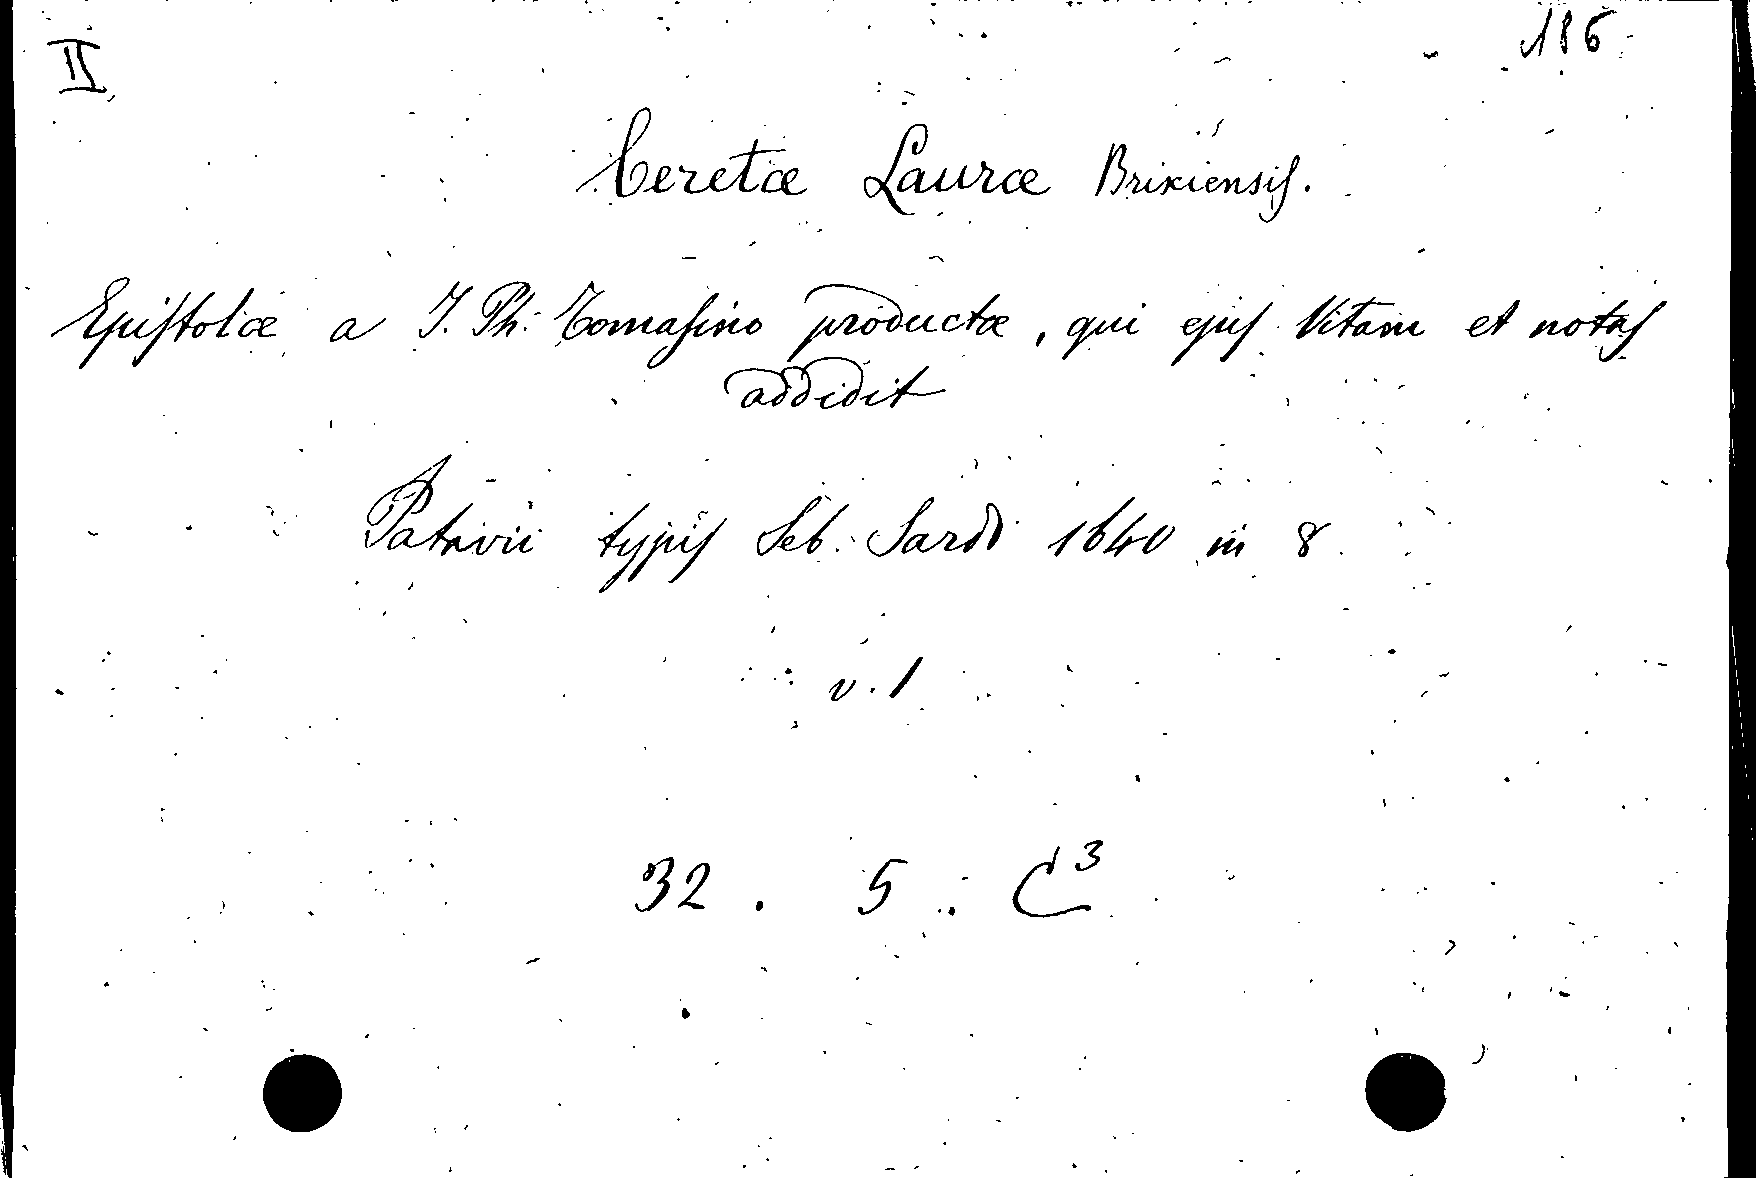 II
186
Ceretæ Lauræ Brixiensis.
Epistolæ a J. Ph. Tomasino productæ, qui ejus Vitam et notas
addidit
Patavii typis Seb. Sardi 1640 in 8
v. 1
32 . 5 . C³